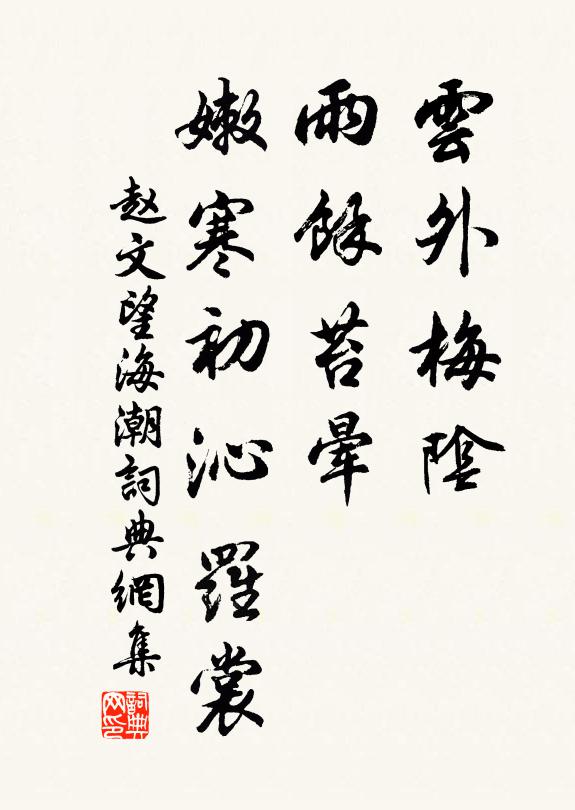 雲外梅陰
雨餘苔暈
嫩寒初沁羅裳
赵文望海潮詞典網集
詞典网印